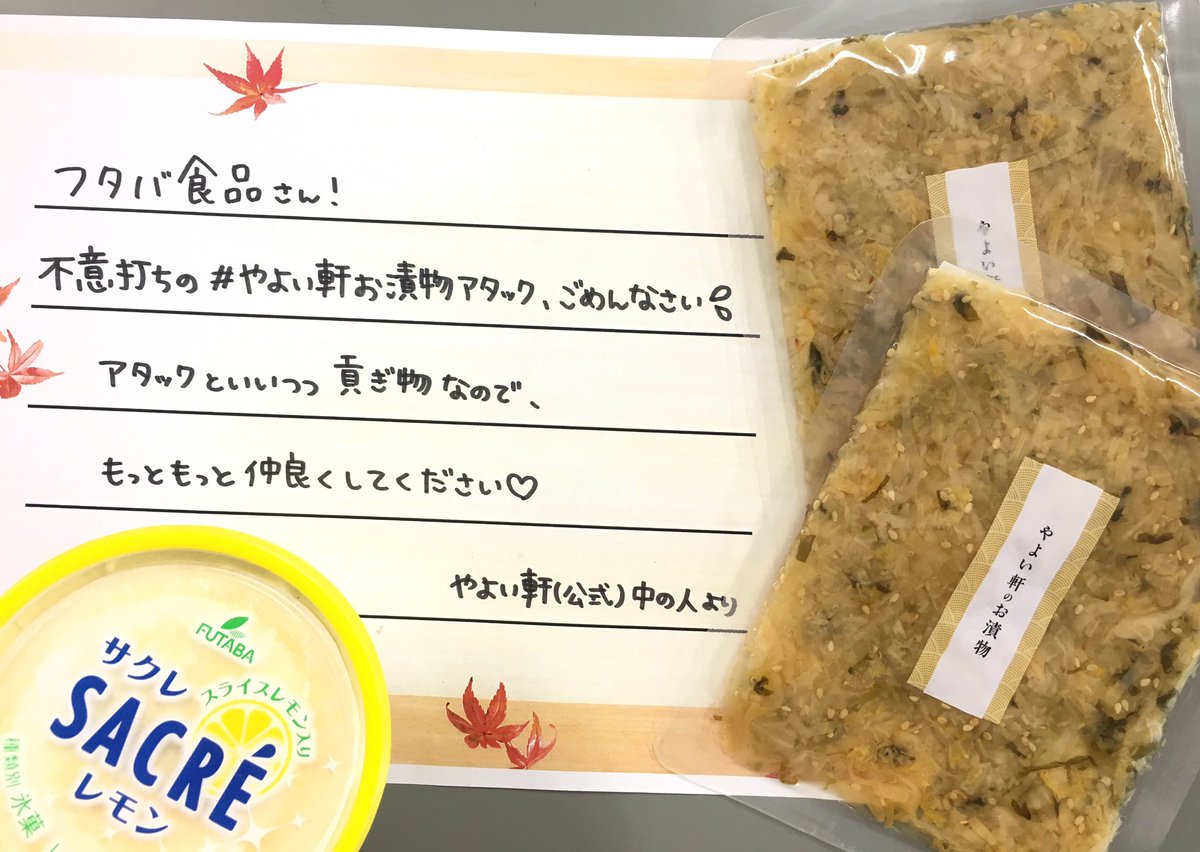 フタバ食品さん!
不意打ちの #やよい軒お漬物アタック、ごめんなさい
アタックといいつつ 貢ぎ物なので、
もっともっと仲良くしてください♡
やよい軒(公式)中の人より
やよい
やよい軒のお漬物
FUTABA
サクレ
スライスレモン入り
SACRÉ
レモン
種類別 氷菓